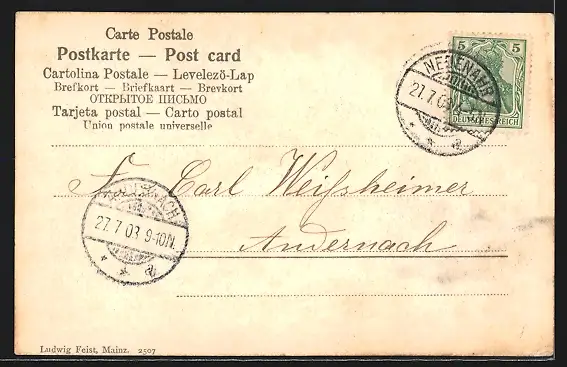 Carte Postale
Postkarte — Post card
Cartolina Postale — Levelezö-Lap
Brefkort — Briefkaart — Brevkort
ОТКРЫТОЕ ПИСЬМО
Tarjeta postal — Carto postal
Union postale universelle
5 5
DEUTSCHES REICH
NEUENAHR
27.7.03
* * a
Carl Weifsheimer
Andernach
ANDERNACH
27.7 03 9-10N.
* * a
Ludwig Feist, Mainz. 2507